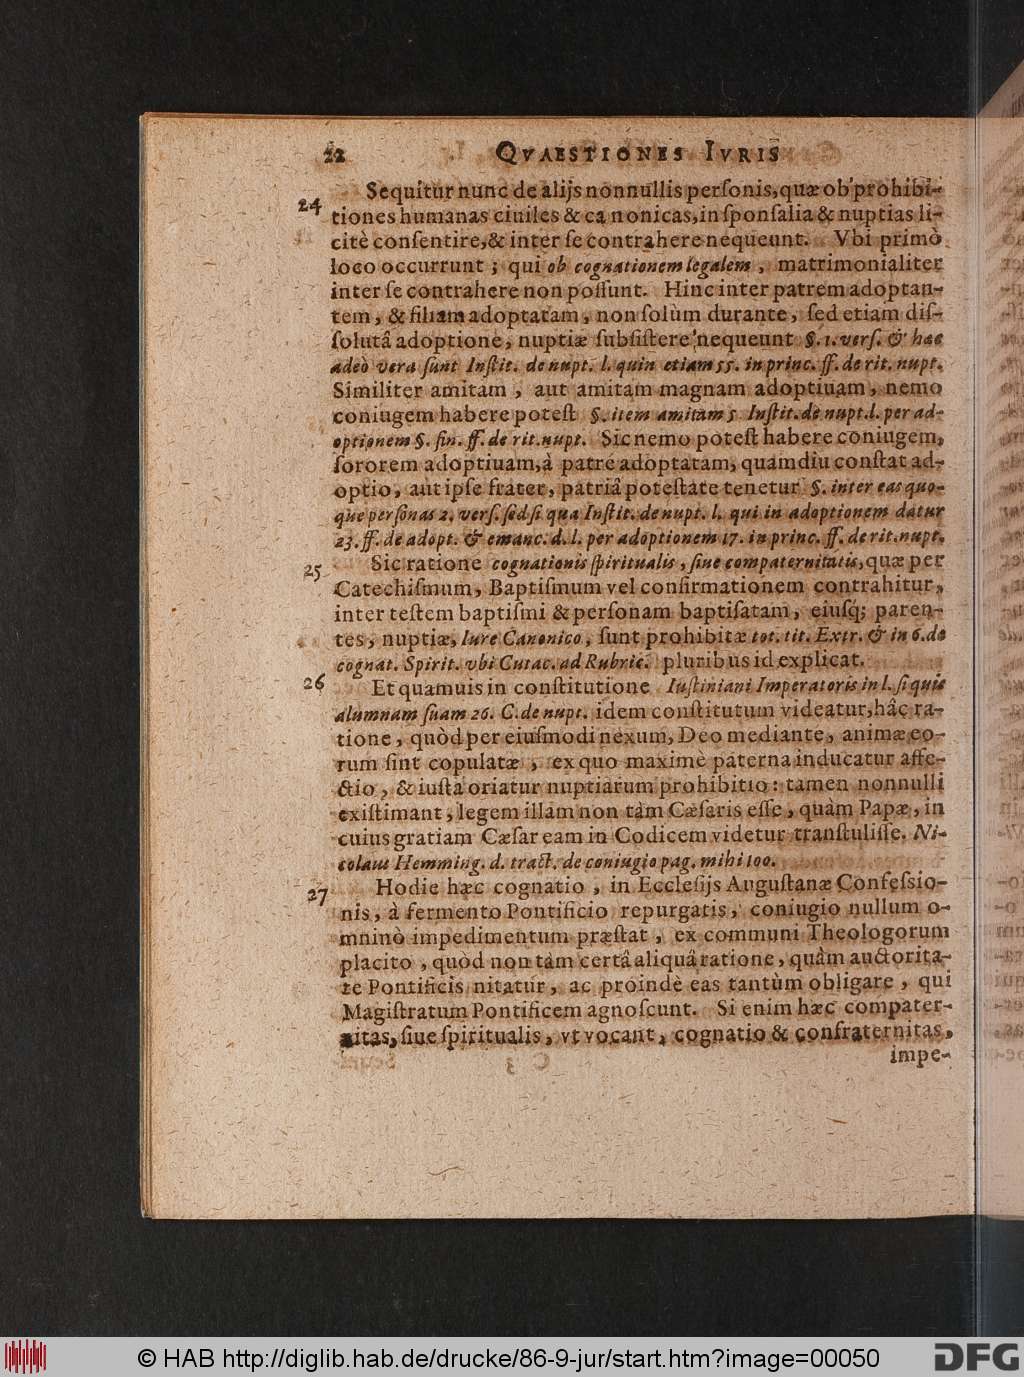 22 QVAESTIONES IVRIS
24 Sequitur nunc de alijs nonnullis perſonis, quæ ob prohibi-
tiones humanas ciuiles & canonicas, in ſponſalia & nuptias li-
citè conſentire, & inter ſe contrahere nequeunt. Vbi primò
loco occurrunt ; qui ob cognationem legalem , matrimonialiter
inter ſe contrahere non poſſunt. Hinc inter patrem adoptan-
tem , & filiam adoptatam , non ſolùm durante , ſed etiam diſ-
ſolutâ adoptione , nuptiæ ſubſiſtere nequeunt §. 1. verſ. & hæc
adeò vera ſunt Inſtit. de nupt. l. quin etiam 55. in princ. ff. de rit. nupt.
Similiter amitam , aut amitam magnam adoptiuam , nemo
coniugem habere poteſt §. item amitam 5 Inſtit. de nupt. l. per ad-
optionem §. fin. ff. de rit. nupt. Sic nemo poteſt habere coniugem,
ſororem adoptiuam, à patre adoptatam, quamdiu conſtat ad-
optio , aut ipſe frater , patriâ poteſtate tenetur §. inter eas quo-
que perſonas 2. verſ. ſed ſi qua Inſtit. de nupt. l. qui in adoptionem datur
23. ff. de adopt. & emanc. d. l. per adoptionem 17. in princ. ff. de rit. nupt.
25 Sic ratione cognationis ſpiritualis , ſine compaternitatis, quæ per
Catechiſmum, Baptiſmum vel confirmationem contrahitur,
inter teſtem baptiſmi & perſonam baptiſatam , eiuſq; paren-
tes, nuptiæ, Iure Canonico , ſunt prohibitæ tot. tit. Extr. & in 6. de
cognat. Spirit. vbi Cuiac. ad Rubric. pluribus id explicat.
26 Et quamuis in conſtitutione Iuſtiniani Imperatoris in l. ſi quis
alumnam ſuam 26. C. de nupt. idem conſtitutum videatur, hâc ra-
tione , quòd per eiuſmodi nexum, Deo mediante, animæ eo-
rum ſint copulatæ , ex quo maximè paterna inducatur affe-
ctio , & iuſta oriatur nuptiarum prohibitio : tamen nonnulli
exiſtimant , legem illam non tàm Cæſaris eſſe , quàm Papæ , in
cuius gratiam Cæſar eam in Codicem videtur tranſtuliſſe. Ni-
colaus Hemming. d. tract. de coniugio pag. mihi 100.
27 Hodie hæc cognatio , in Eccleſijs Auguſtanæ Confeſsio-
nis, à fermento Pontificio repurgatis, coniugio nullum o-
mninò impedimentum præſtat , ex communi Theologorum
placito , quòd non tàm certâ aliquâ ratione , quàm auctorita-
te Pontificis nitatur , ac proindè eas tantùm obligare , qui
Magiſtratum Pontificem agnoſcunt. Si enim hæc compater-
nitas, ſiue ſpiritualis , vt vocant , cognatio & confraternitas,
impe-
© HAB http://diglib.hab.de/drucke/86-9-jur/start.htm?image=00050
DFG